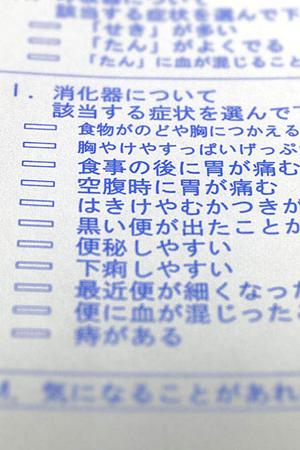 該当する症状を選んで下
「せき」が多い
「たん」がよくでる
「たん」に血が混じること
I. 消化器について
該当する症状を選んで下
食物がのどや胸につかえる
胸やけやすっぱいげっぷ
食事の後に胃が痛む
空腹時に胃が痛む
はきけやむかつきが
黒い便が出たことか
便秘しやすい
下痢しやすい
最近便が細くなった
便に血が混じったこ
痔がある
気になることがあれ